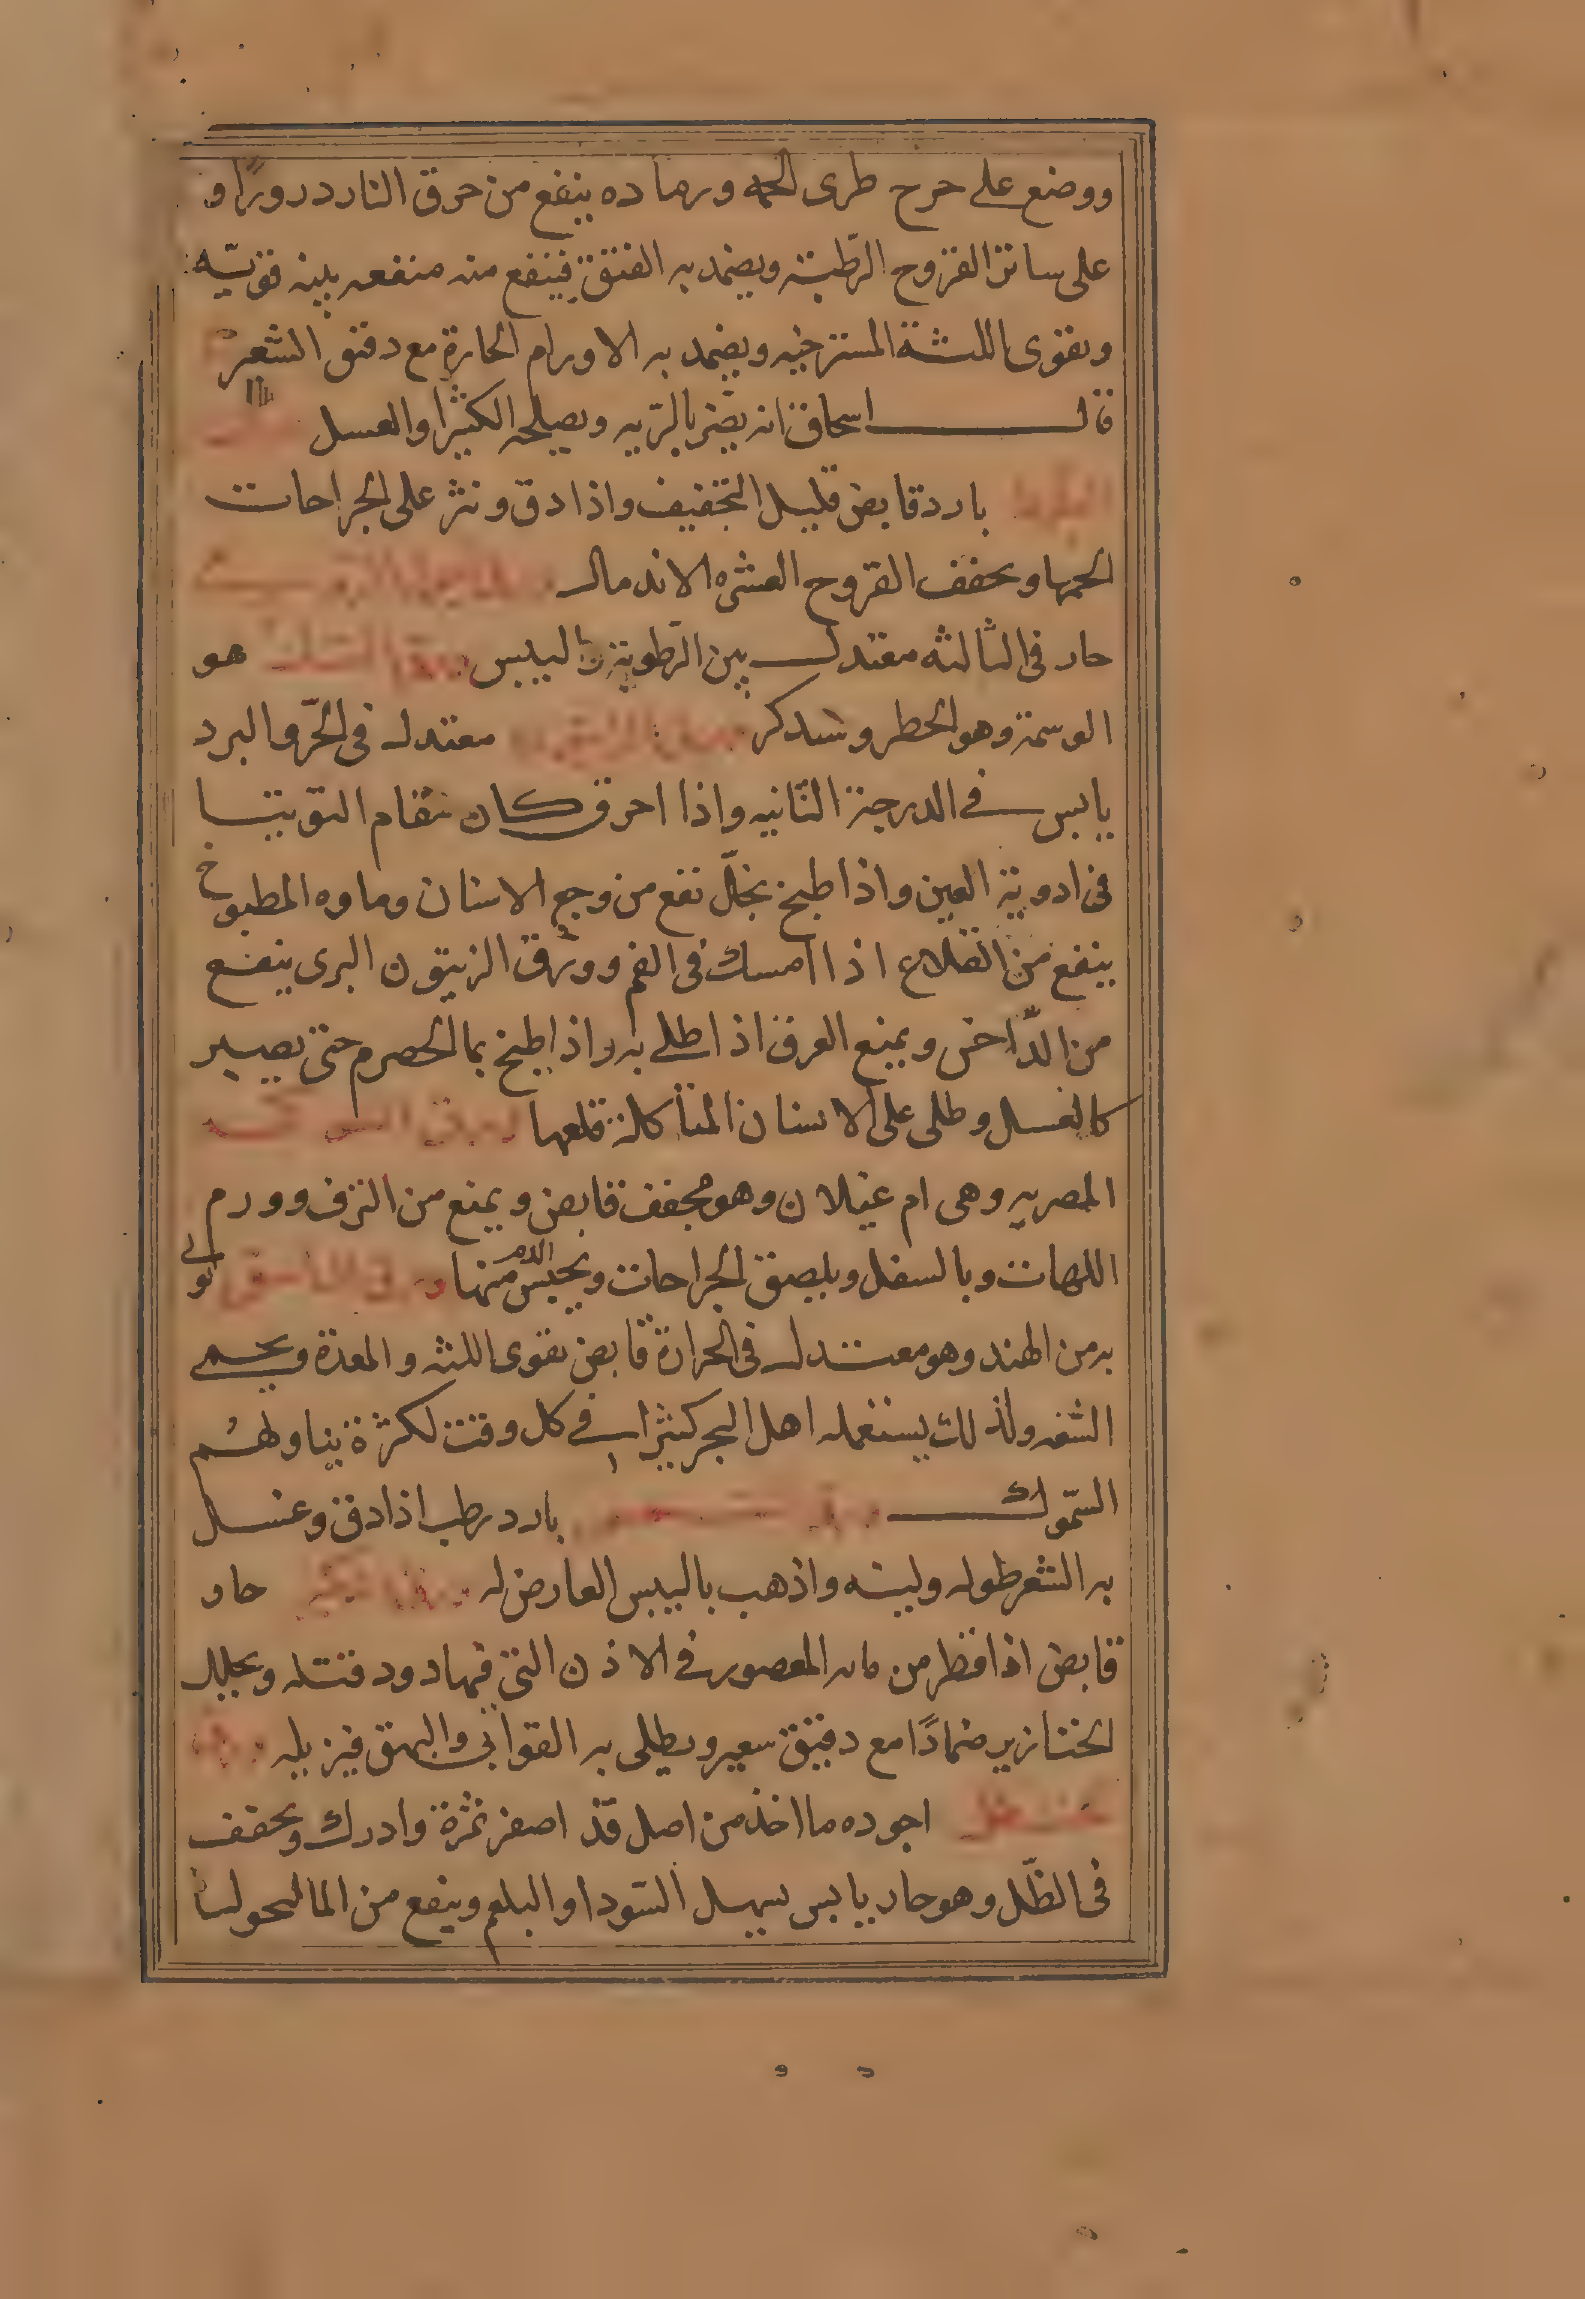 ووضع على جرح طرى الحمه ورماده ينفع من حرق النار ذرورًا و
على سائر القروح الرّطبة ويضمد به الفتق فينفع منه منفعه بينه قويّه
ويقوى اللثة المسترخيه ويضمد به الاورام الحارة مع دقيق الشعير
قال اسحاق انه يضر بالرّيه ويصلحه الكثيرا والعسل
بارد قابض قليل التجفيف واذا دق ونثر على الجراحات
الحمها ويجفف القروح العسره الاندمال
حار فى الثالثه معتدل بين الرّطوبة واليبس ورق النيل هو
الوسمة وهو الخطر وسنذكر ورق الزيتون معتدل فى الحرّ والبرد
يابس فى الدرجة الثانيه واذا احرق كان مقام التوتيا
فى ادوية العين واذا طبخ بخلّ نفع من وجع الاسنان وماوه المطبوخ
ينفع من القلاع اذا امسك فى الفم وورق الزيتون البرى ينفع
من الدّاحس ويمنع العرق اذا طلى به واذا طبخ بما الحصرم حتى يصير
كالعسل وطلى على الاسنان المتأكلة قلعها
المصريه وهى ام غيلان وهو مجفف قابض ويمنع من النزف وورم
اللهات وبالسفل ويلصق الجراحات ويحبس الدم منها يوتى
به من الهند وهو معتدل فى الحرارة قابض يقوى اللثه والمعدة ويحمى
الشفه ولذلك يستعمله اهل البحر كثيرا فى كل وقت لكثرة تناولهم
السّموك ورق بارد رطب اذا دق وغسل
به الشعر طوله ولينه واذهب باليبس العارض له حار
قابض اذا قطر من مائه المعصور فى الاذن التى فيها دود قتله ويحلل
الخنازير ضمادًا مع دقيق شعير ويطلى به القوابى والبهق فيزيله ورق
حنظل اجوده ما اخذ من اصل قد اصفر ثمرة وادرك ويجفف
فى الظّل وهو حار يابس يسهل السّودا والبلغم وينفع من المالنخوليا